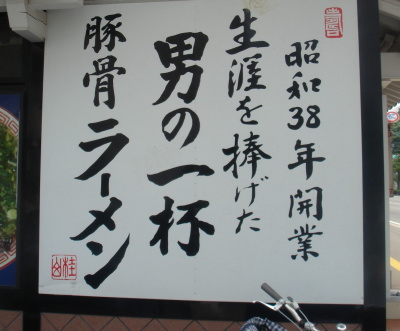 昭和38年開業
生涯を捧げた
男の一杯
豚骨ラーメン
桂山